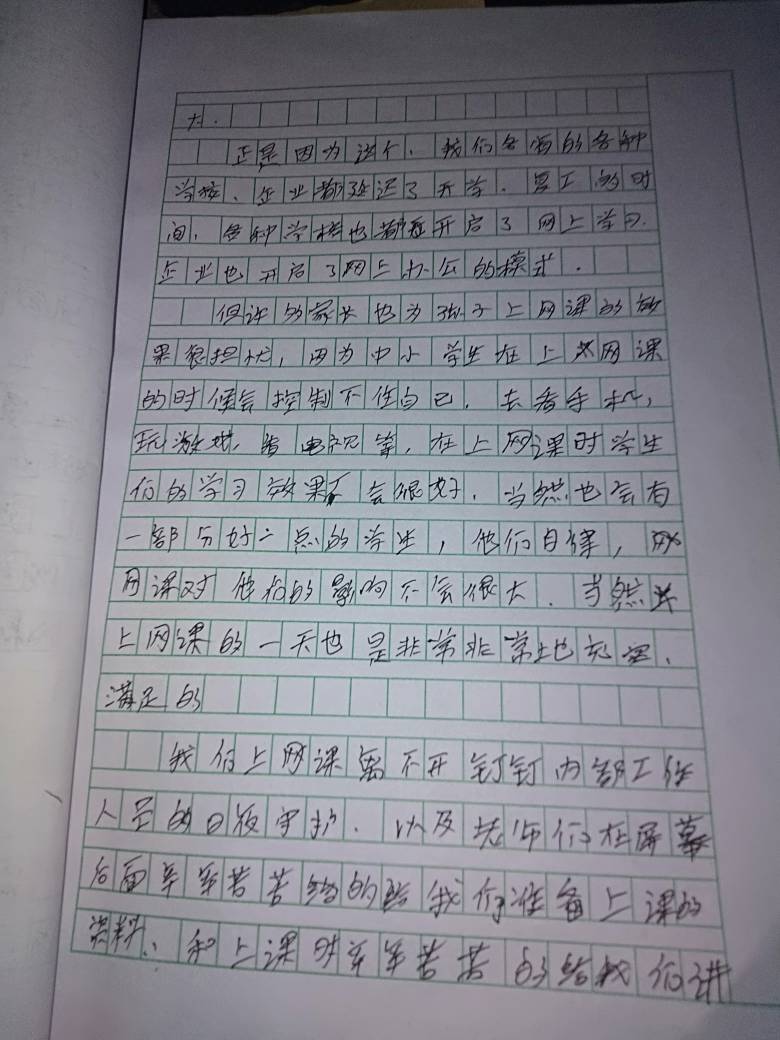 大.
正是因为这个、我们各省的各种
学校、企业都延迟了开学、复工的时
间、各种学校也都在开启了网上学习.
企业也开启了网上办公的模式.
但许多家长也为孩子上网课的效
果很担忧，因为中小学生在上网课
的时候会控制不住自己、去看手机，
玩游戏、看电视等，在上网课时学生
们的学习效果不会很好.当然也会有
一部分好一点的学生，他们自律，
网课对他们的影响不会很大.当然
上网课的一天也是非常非常地充实、
满足的
我们上网课离不开钉钉内部工作
人员的日夜守护.以及老师们在屏幕
后面辛辛苦苦的给我们准备上课的
资料、和上课时辛辛苦苦的给我们讲